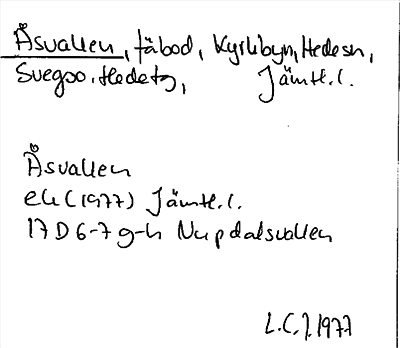 Åsvallen, fäbod, Kyrkbyn, Hede sn,
Svegs o. Hede tg, Jämtl. l.
Åsvallen
ek (1977) Jämtl. l.
17D 6-7 g-h Nupdalsvallen
L.C.J. 1977